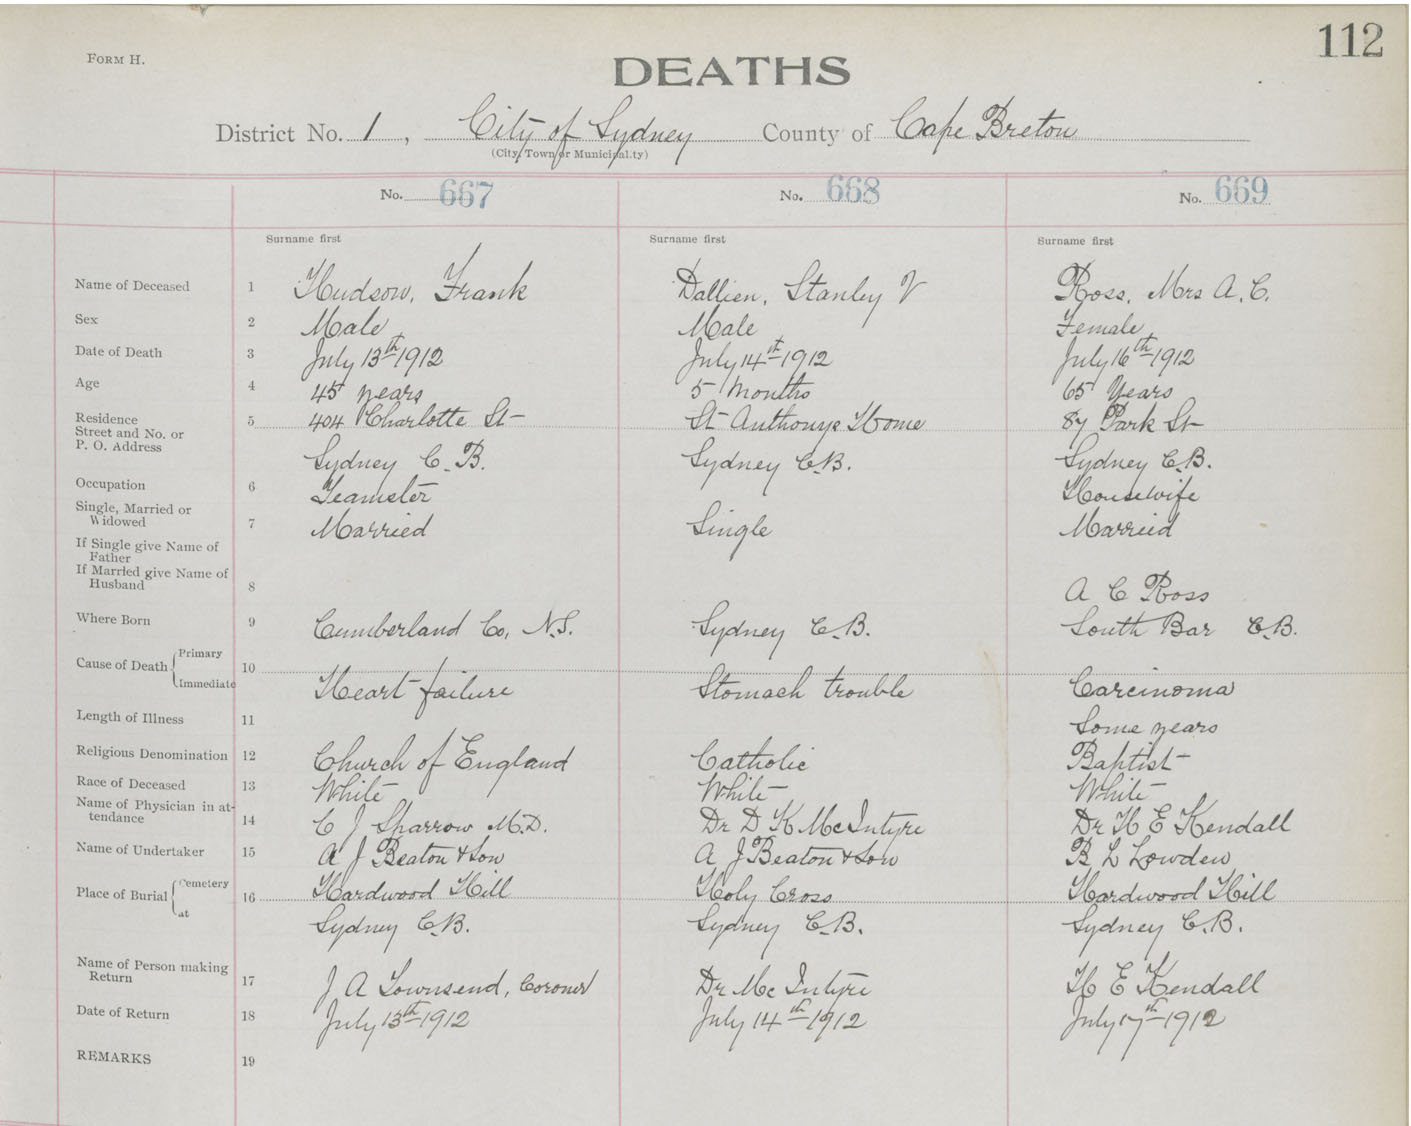 112
FORM H.
DEATHS
District No. 1, City of Sydney County of Cape Breton
(City, Town or Municipality)
No. 667 No. 668 No. 669
Surname first Surname first Surname first
Name of Deceased 1 Hudson, Frank Dallien, Stanley V Ross, Mrs A. C.
Sex 2 Male Male Female
Date of Death 3 July 13th 1912 July 14th 1912 July 16th 1912
Age 4 45 years 5 Months 65 Years
Residence
Street and No. or 5 404 Charlotte St St Anthonys Home 87 Park St
P. O. Address
Sydney C. B. Sydney C.B. Sydney C.B.
Occupation 6 Teamster Housewife
Single, Married or
Widowed 7 Married Single Married
If Single give Name of
Father
If Married give Name of
Husband 8 A C Ross
Where Born 9 Cumberland Co, N.S. Sydney C.B. South Bar C.B.
Cause of Death Primary 10
Immediate Heart failure Stomach trouble Carcinoma
Length of Illness 11 Some years
Religious Denomination 12 Church of England Catholic Baptist
Race of Deceased 13 White White White
Name of Physician in at-
tendance 14 C J Sparrow M.D. Dr D K McIntyre Dr H E Kendall
Name of Undertaker 15 A J Beaton & Son A J Beaton & Son B L Lowden
Place of Burial Cemetery 16 Hardwood Hill Holy Cross Hardwood Hill
at Sydney C.B. Sydney C.B. Sydney C.B.
Name of Person making
Return 17 J A Townsend, Coroner Dr McIntyre H E Kendall
Date of Return 18 July 13th 1912 July 14th 1912 July 17th 1912
REMARKS 19